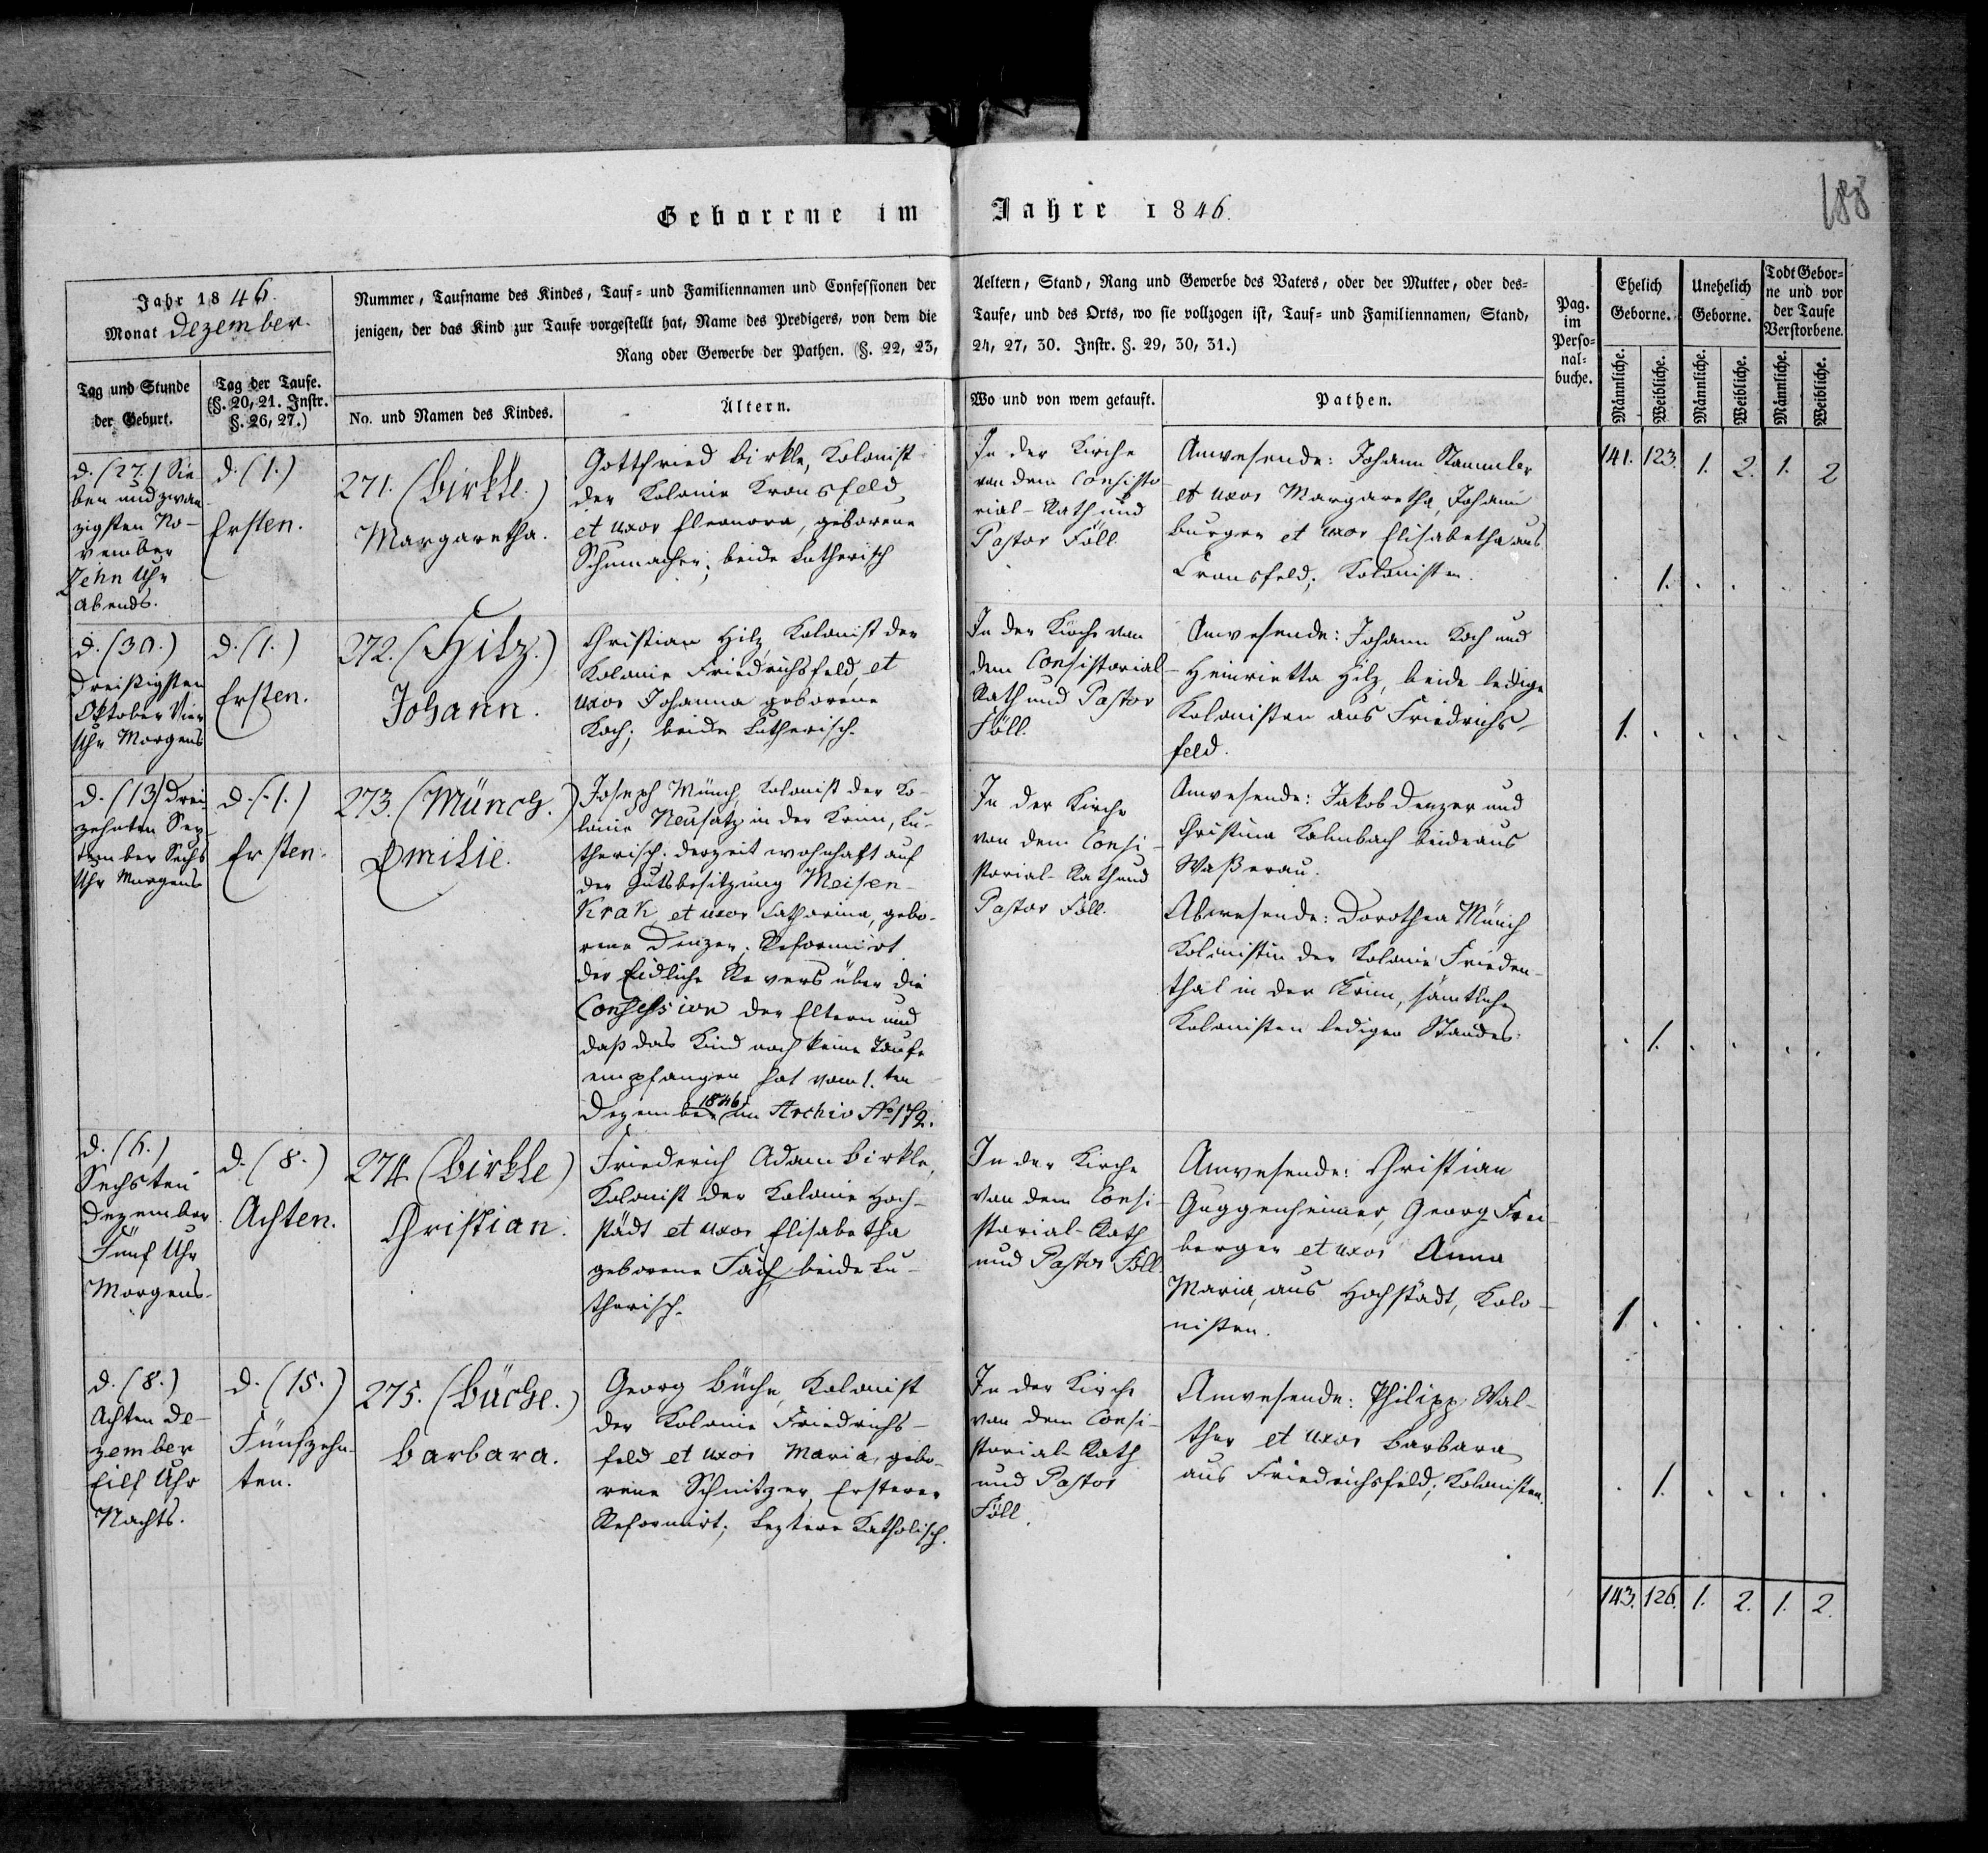 Geborene im Jahre 1846.
188
Jahr 1846.
Monat Dezember.
Tag und Stunde
der Geburt.
Tag der Taufe.
(§. 20, 21. Instr.
§. 26, 27.)
Nummer, Taufname des Kindes, Tauf- und Familiennamen und Confessionen der
jenigen, der das Kind zur Taufe vorgestellt hat, Name des Predigers, von dem die
Rang oder Gewerbe der Pathen. (§. 22, 23,
No. und Namen des Kindes.
Ältern.
Aeltern, Stand, Rang und Gewerbe des Vaters, oder der Mutter, oder des-
Taufe, und des Orts, wo sie vollzogen ist, Tauf- und Familiennamen, Stand,
24, 27, 30. Instr. §. 29, 30, 31.)
Wo und von wem getauft.
Pathen.
Pag.
im
Perso-
nal-
buche.
Ehelich
Geborne.
Unehelich
Geborne.
Todt Gebor-
ne und vor
der Taufe
Verstorbene.
Männliche.
Weibliche.
Männliche.
Weibliche.
Männliche.
Weibliche.
141. 123. 1. 2. 1. 2
d. (27.) Sie
ben und zwan-
zigsten No-
vember
Zehn Uhr
Abends.
d. (1.)
Ersten.
271. (Birkle.)
Margaretha.
Gottfried Birkle, Kolonist
der Kolonie Kronsfeld
et uxor Eleonora, geborene
Schumacher; beide Lutherisch
In der Kirche
von dem Consisto
rial-Rath und
Pastor Föll.
Anwesende: Johann Stammler
et uxor Margaretha, Johann
Burger et uxor Elisabetha aus
Cronsfeld; Kolonisten.
. 1. . . . .
d. (30.)
Dreißigsten
Oktober Vier
Uhr Morgens
d. (1.)
Ersten.
272. (Hilz.)
Johann.
Christian Hilz, Kolonist der
Kolonie Friedrichsfeld, et
uxor Johanna geborene
Koch; beide Lutherisch.
In der Kirche von
dem Consistorial-
Rath und Pastor
Föll.
Anwesende: Johann Koch und
Heinrietta Hilz, beide ledige
Kolonisten aus Friedrichs-
feld.
1. . . . .
d. (13) Drei
zehnten Sep-
tember Sechs
Uhr Morgens
d. (1.)
Ersten.
273. (Münch.)
Emilie.
Joseph Münch, Kolonist der Ko-
lonie Neusatz in der Krim, Lu-
therisch. derzeit wohnhaft auf
der Gutsbesitzung Meisen-
Krak, et uxor Catharina, gebo-
rene Denzer; Reformirt
der Eidliche Revers über die
Confession der Eltern und
daß das Kind noch keine Taufe
empfangen hat vom 1. ten
Dezember 1846 im Archiv No 172.
In der Kirche
von dem Consi-
storial-Rath und
Pastor Föll.
Anwesende: Jakob Denzer und
Christina Kalmbach beide aus
Waßerau.
Abwesende: Dorothea Münch
Kolonistin der Kolonie Frieden-
thal in der Krim, sämtliche
Kolonisten ledigen Standes.
. 1. . . . .
d. (6.)
Sechsten
Dezember
Fünf Uhr
Morgens.
d. (8.)
Achten.
274. (Birkle)
Christian.
Friederich Adam Birkle,
Kolonist der Kolonie Hoch-
städt et uxor Elisabetha
geborene beide Lu-
therisch.
In der Kirche
von dem Consi-
storial-Rath
und Pastor Föll.
Anwesende: Christian
Guggenheimer, Georg Frei-
berger et uxor Anna
Maria, aus Hochstädt, Kolo-
nisten.
1 . . . . .
d. (8.)
Achten De-
zember
Eilf Uhr
Nachts.
d. (15.)
Fünfzehn-
ten.
275. (Büche.)
Barbara.
Georg Büche, Kolonist
der Kolonie Friedrichs-
feld et uxor Maria, gebo-
rene Schnitzer, Ersterer
Reformirt; Leztere Katholisch.
In der Kirche
von dem Consi-
storial-Rath
und Pastor
Föll.
Anwesende: Philipp Wal-
ther et uxor Barbara
aus Friedrichsfeld; Kolonisten.
. 1. . . . .
143. 126. 1. 2. 1. 2.